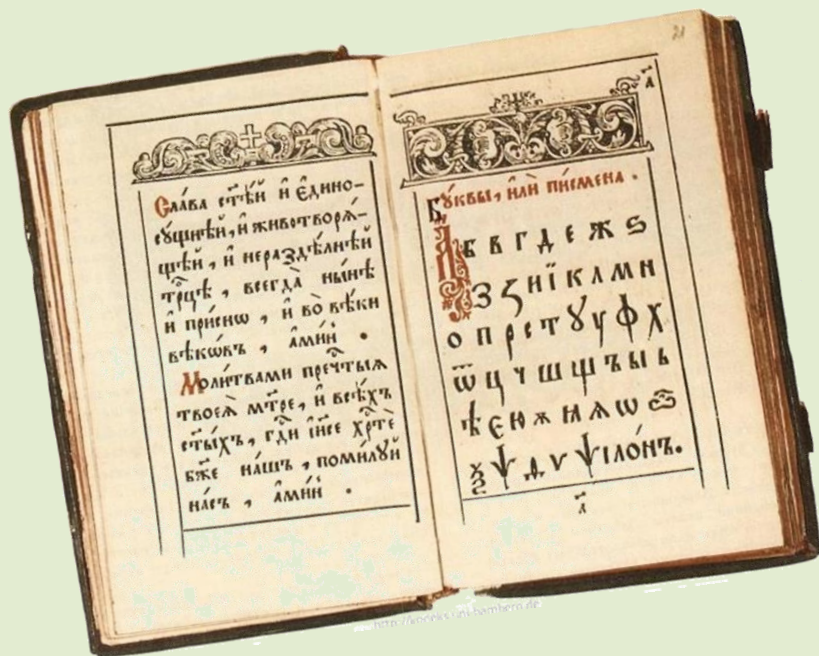 Сла́ва ст҃ѣ́й и҆ є҆дино-
сꙋ́щнѣй, и҆ животворѧ́-
щѣй, и҆ нераздѣ́лнѣй
трⷪ҇цѣ, всегда̀ ны́нѣ
и҆ при́снѡ, и҆ во̀ вѣ́ки
вѣкѡ́въ, а҆ми́нь.
Моли́твами пречⷭ҇тыѧ
твоеѧ̀ мт҃ре, и҆ всѣ́хъ
ст҃ы́хъ, гдⷭ҇и і҆и҃се хрⷭ҇тѐ
бж҃е на́шъ, поми́лꙋй
на́съ, а҆ми́нь.
21
Бꙋ́квы, и҆лѝ пи́смена.
А Б В Г Д Е Ж Ѕ
З Ꙁ И Ї К Л М Н
О П Р С Т Ꙋ У Ф Х
Ѿ Ц Ч Ш Щ Ъ Ы Ь
Ѣ Є Ю Ѫ Ꙗ Ѧ Ѡ
Ѯ Ѱ Ѳ Ѵ Ѱіло́нъ.